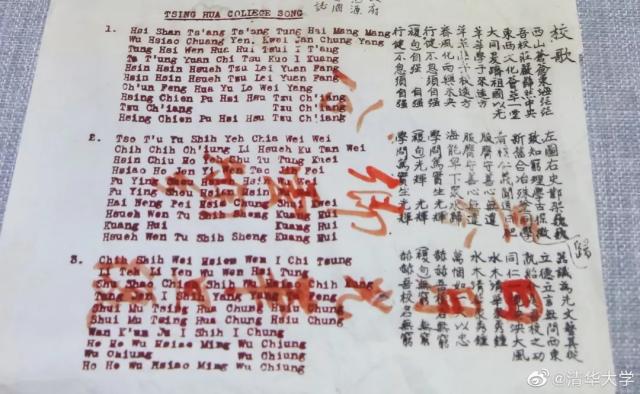 TSING HUA COLLEGE SONG
1. Hsi Shan Ts'ang Ts'ang Tung Hai Mang Mang
Wu Hsiao Chuang Yen, Kwei Jan Chung Yang
Tung Hsi Wen Hua Hui Tsui I T'ang
Ta T'ung Yuan Chi Tsu Kuo I Kuang
Hsin Hsin Hsueh Tzu Lei Yuan Fang
Hsin Hsin Hsueh Tzu Lei Yuan Fang
Ch'un Feng Hua Yu Lo Wei Yang
Hsing Chien Pu Hsi Hsu Tzu Ch'iang
Tzu Ch'iang Tzu Ch'iang
Hsing Chien Pu Hsi Hsu Tzu Ch'iang
2. Tso T'u Yu Shih Yeh Chia Wei Wei
Chih Chih Ch'iung Li Hsueh Ku Tan Wei
Hsin Chiu Ho Shu Tu Tung Kuei
Hsiao Ho Jen Yi Wen Tao Jih Fei
Fu Ying Shou Hsin Wei
Fu Ying Shou Hsin Wei
Hai Neng Pei Hsia Chung Shui Kwei
Hsueh Wen Tu Shih Sheng Kuang Hui
Kuang Hui Kuang Hui
Hsueh Wen Tu Shih Sheng Kuang Hui
3. Chih Shih Wei Hsien Wen I Chi Tsung
Li Teh Li Yen Wu Wen Hsi Tung
Shu Shao Wu Hsiao Chih Kung
Tung Jen I Shih Yang Feng
Shui Mu Tsing Hua Chung Hsiu Chung
Shui Mu Tsing Hua Chung Hsiu Chung
Wan K'un Ju I Shih I Chung
Ho Ho Wu Hsiao Ming Wu Chiung
Wu Chiung Wu Chiung
Ho Ho Wu Hsiao Ming Wu Chiung
校歌
西山蒼蒼東海茫茫
吾校莊嚴巋然中央
東西文化薈萃一堂
大同爰躋祖國以光
莘莘學子來遠方
莘莘學子來遠方
春風化雨樂未央
行健不息須自强
複句 自强 自强
行健不息須自强
左圖右史鄴架巍巍
致知窮理學古探微
新舊合冶殊途同歸
肴核仁義聞道日肥
服膺守善心無違
服膺守善心無違
海能卑下衆水歸
學問篤實生光輝
複句 光輝 光輝
學問篤實生光輝
歸
器識為先文藝其從
立德立言無問西東
孰紹介吾校之功
同仁一視泱泱大風
水木清華衆秀鍾
水木清華衆秀鍾
萬悃如一矢以忠
赫赫吾校名無窮
複句 無窮 無窮
赫赫吾校名無窮
@清华大学